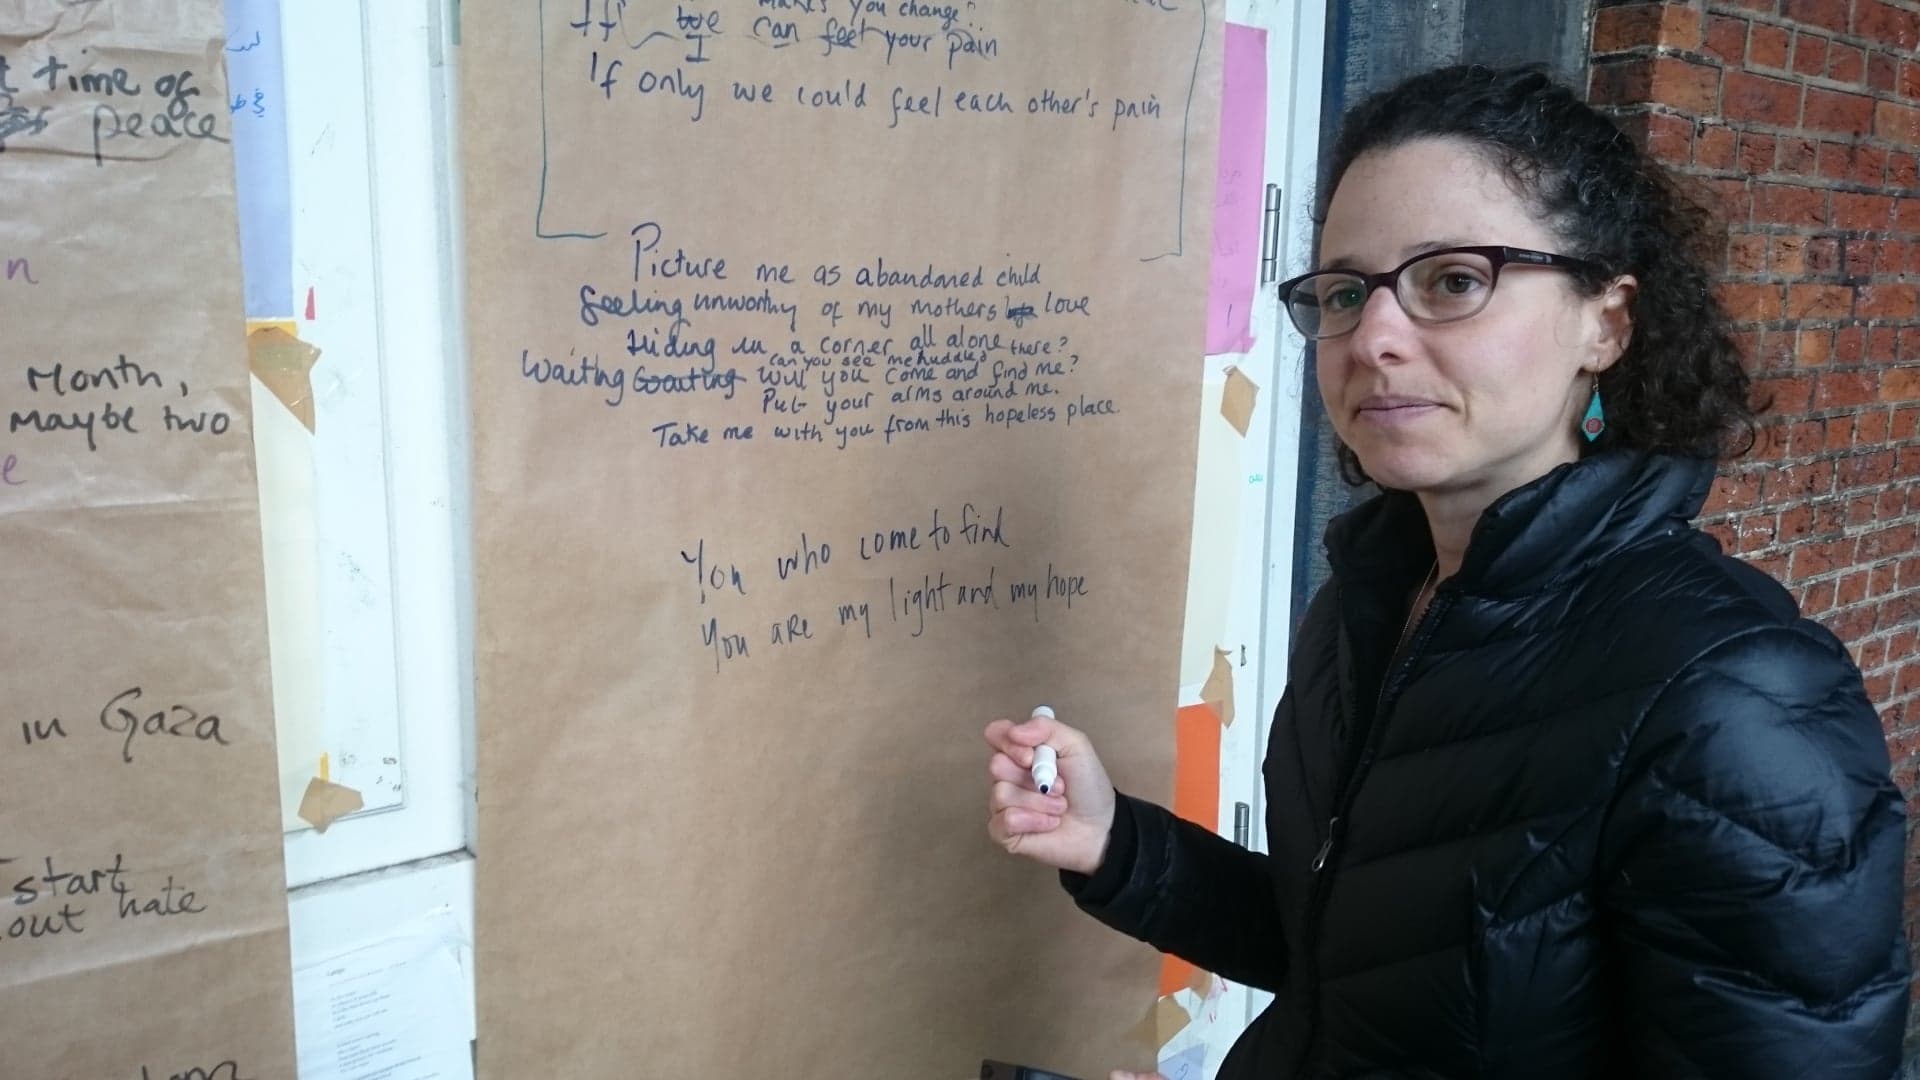 t time of
peace
n
Month,
maybe two
e
in Gaza
start
out hate
makes you change?
If we can feel your pain
I
If only we could feel each other's pain
Picture me as abandoned child
feeling unworthy of my mothers love
Hiding in a corner all alone there?
can you see me huddled
Waiting Waiting will you come and find me?
Put your arms around me.
Take me with you from this hopeless place.
You who come to find
You are my light and my hope